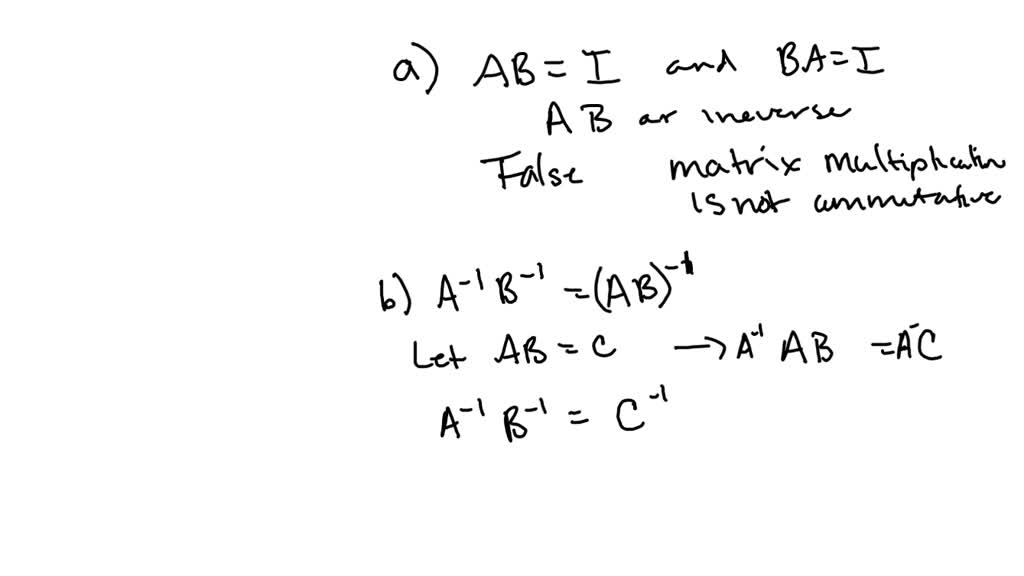 a) AB = I and BA = I
A B ar ineverse
False matrix multiplication
is not commutative
b) A⁻¹ B⁻¹ = (AB)⁻¹
Let AB = C → A⁻¹ AB = A⁻C
A⁻¹ B⁻¹ = C⁻¹